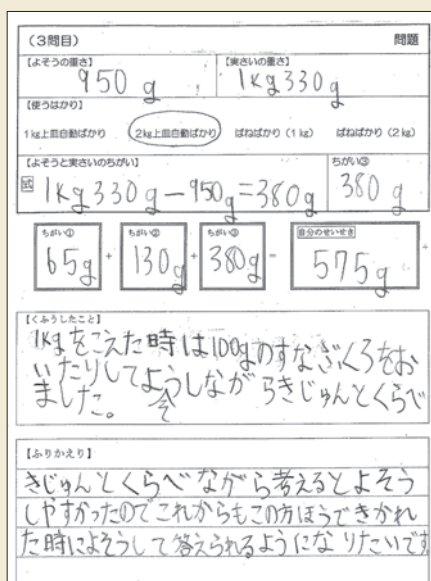 (3問目) 問題
【よそうの重さ】 【実さいの重さ】
950g 1kg330g
【使うはかり】
1kg上皿自動ばかり 2kg上皿自動ばかり ばねばかり(1kg) ばねばかり(2kg)
【よそうと実さいのちがい】 ちがい③
式 1kg330g-950g=380g 380g
ちがい① ちがい② ちがい③ 自分のせいせき
65g + 130g + 380g = 575g +
【くふうしたこと】
1kgをこえた時は100gのすなぶくろをお
いたりしてようしながらきじゅんとくらべ
ました。
【ふりかえり】
きじゅんとくらべながら考えるとよそう
しやすかったのでこれからもこの方ほうできかれ
た時によそうして答えられるようになりたいです